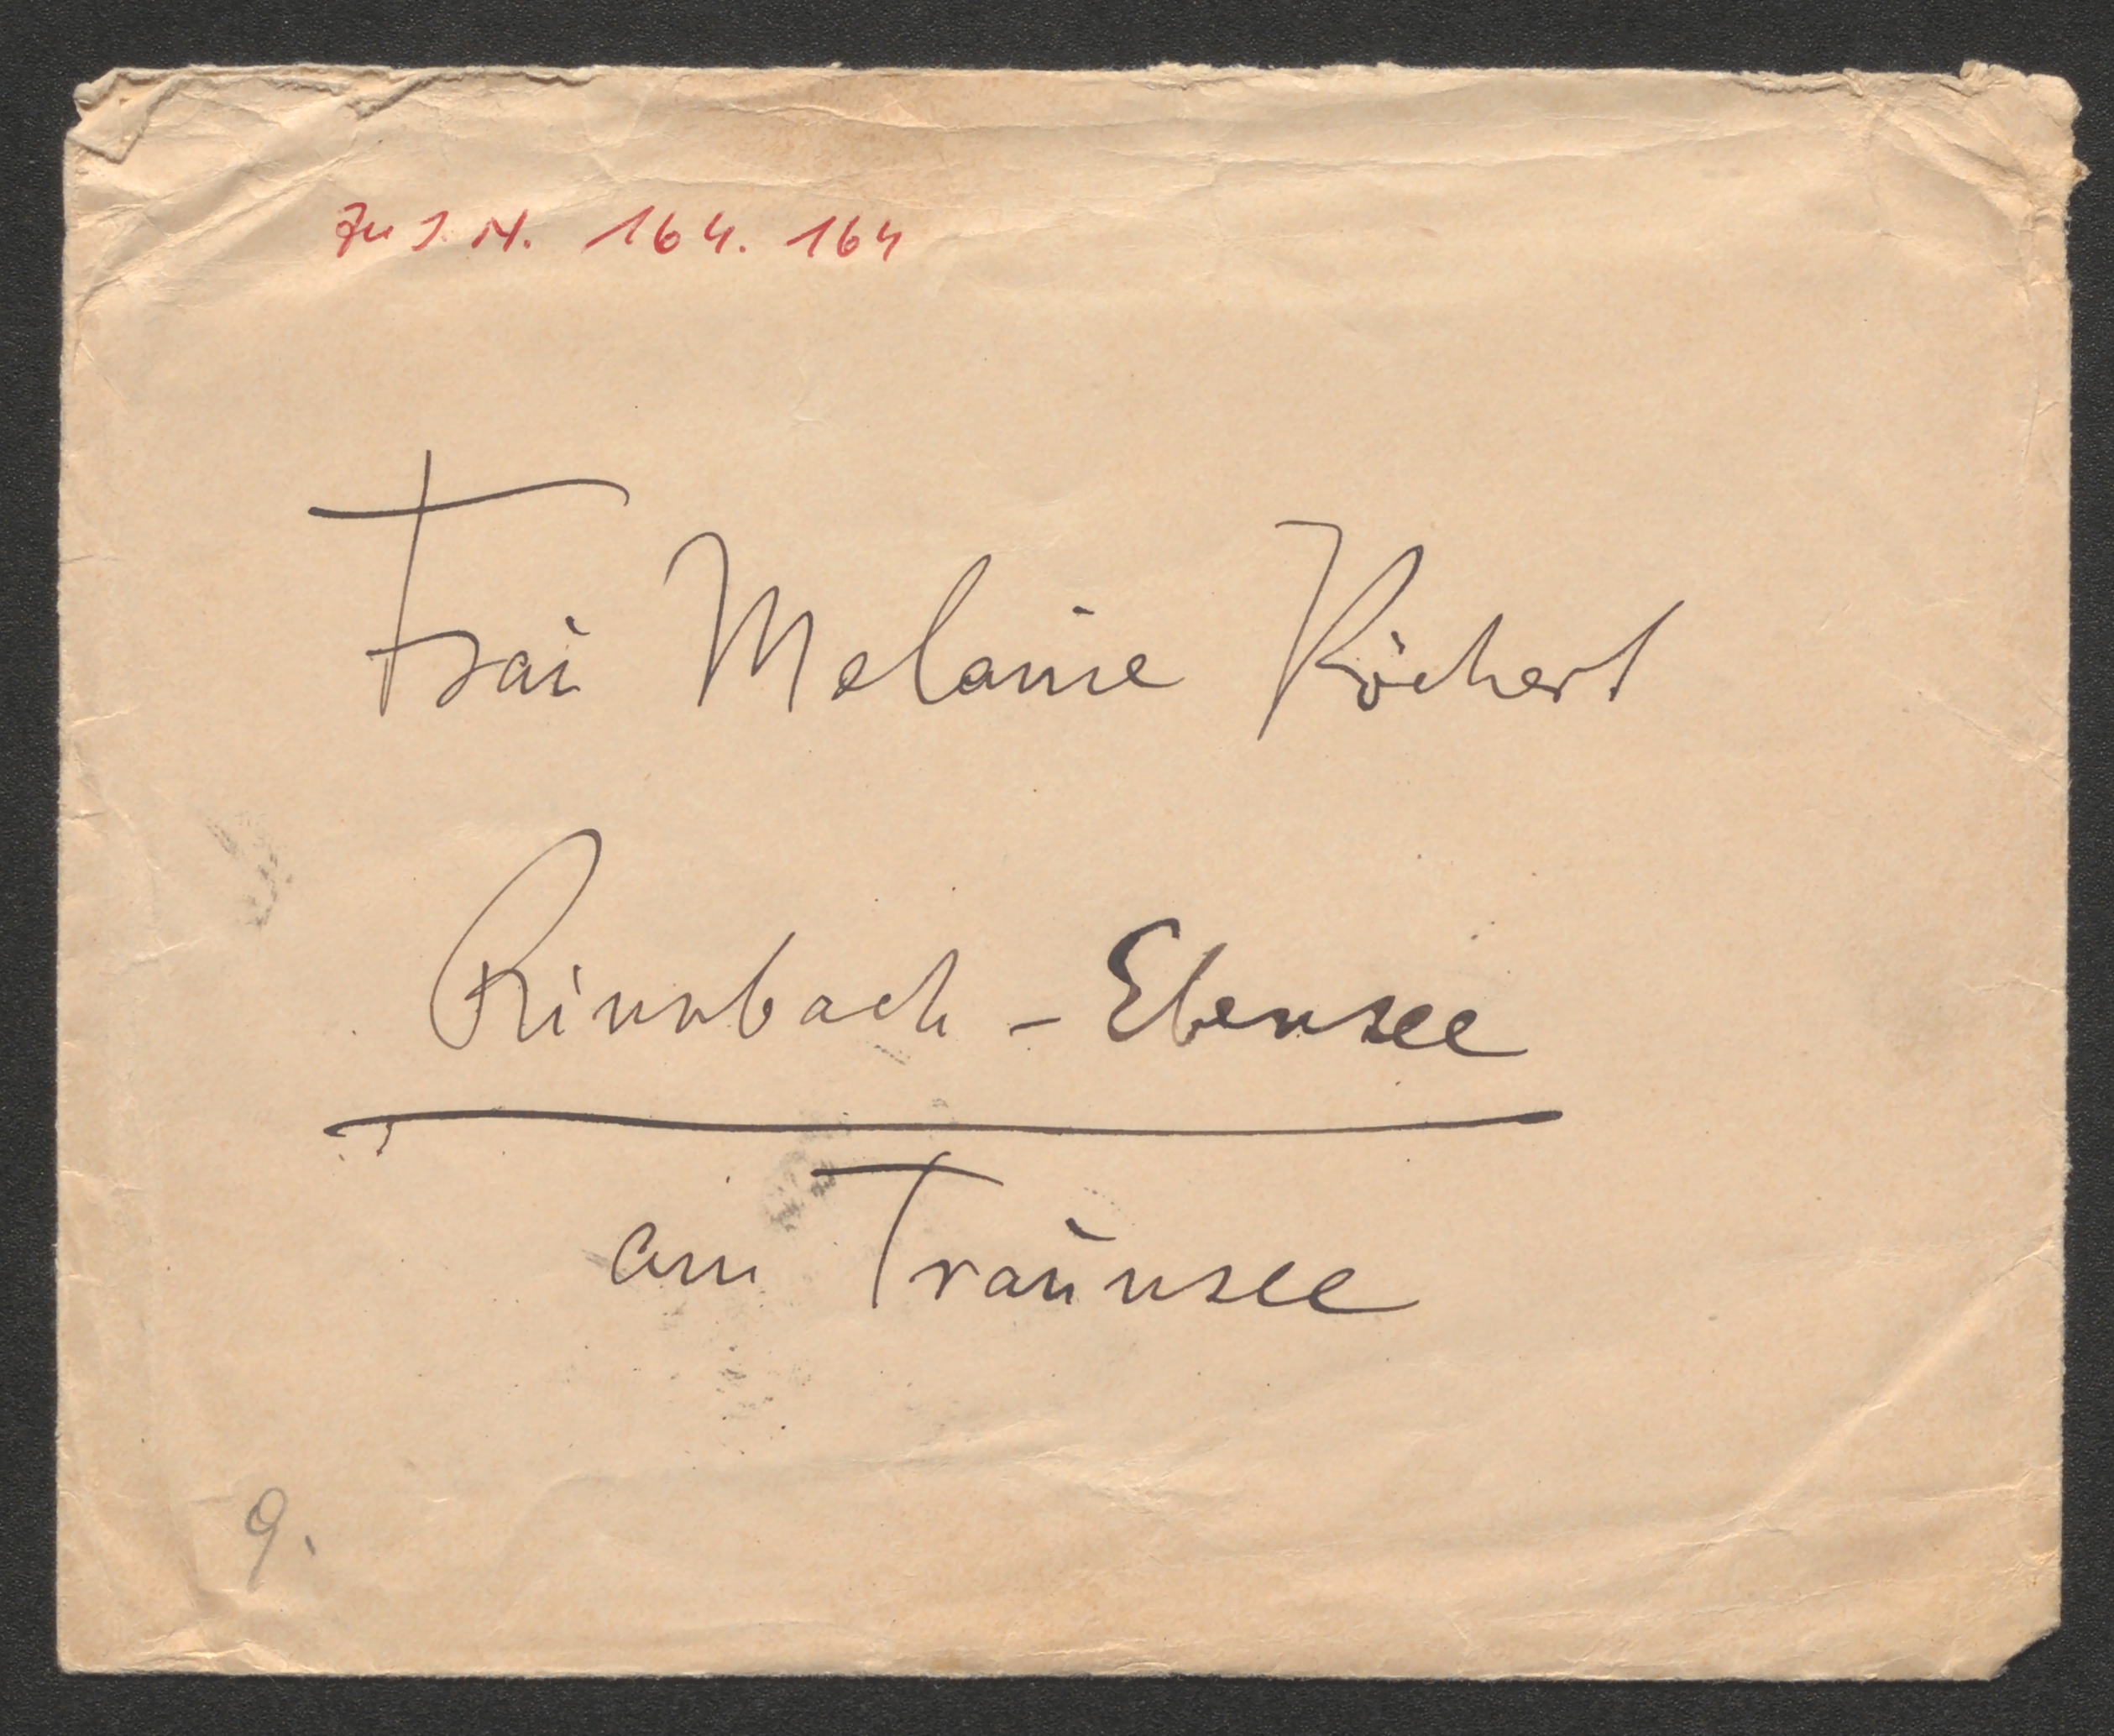 Zu I. N. 164. 164
Frau Melanie Köchert
Rinnbach - Ebensee
am Traunsee
9.